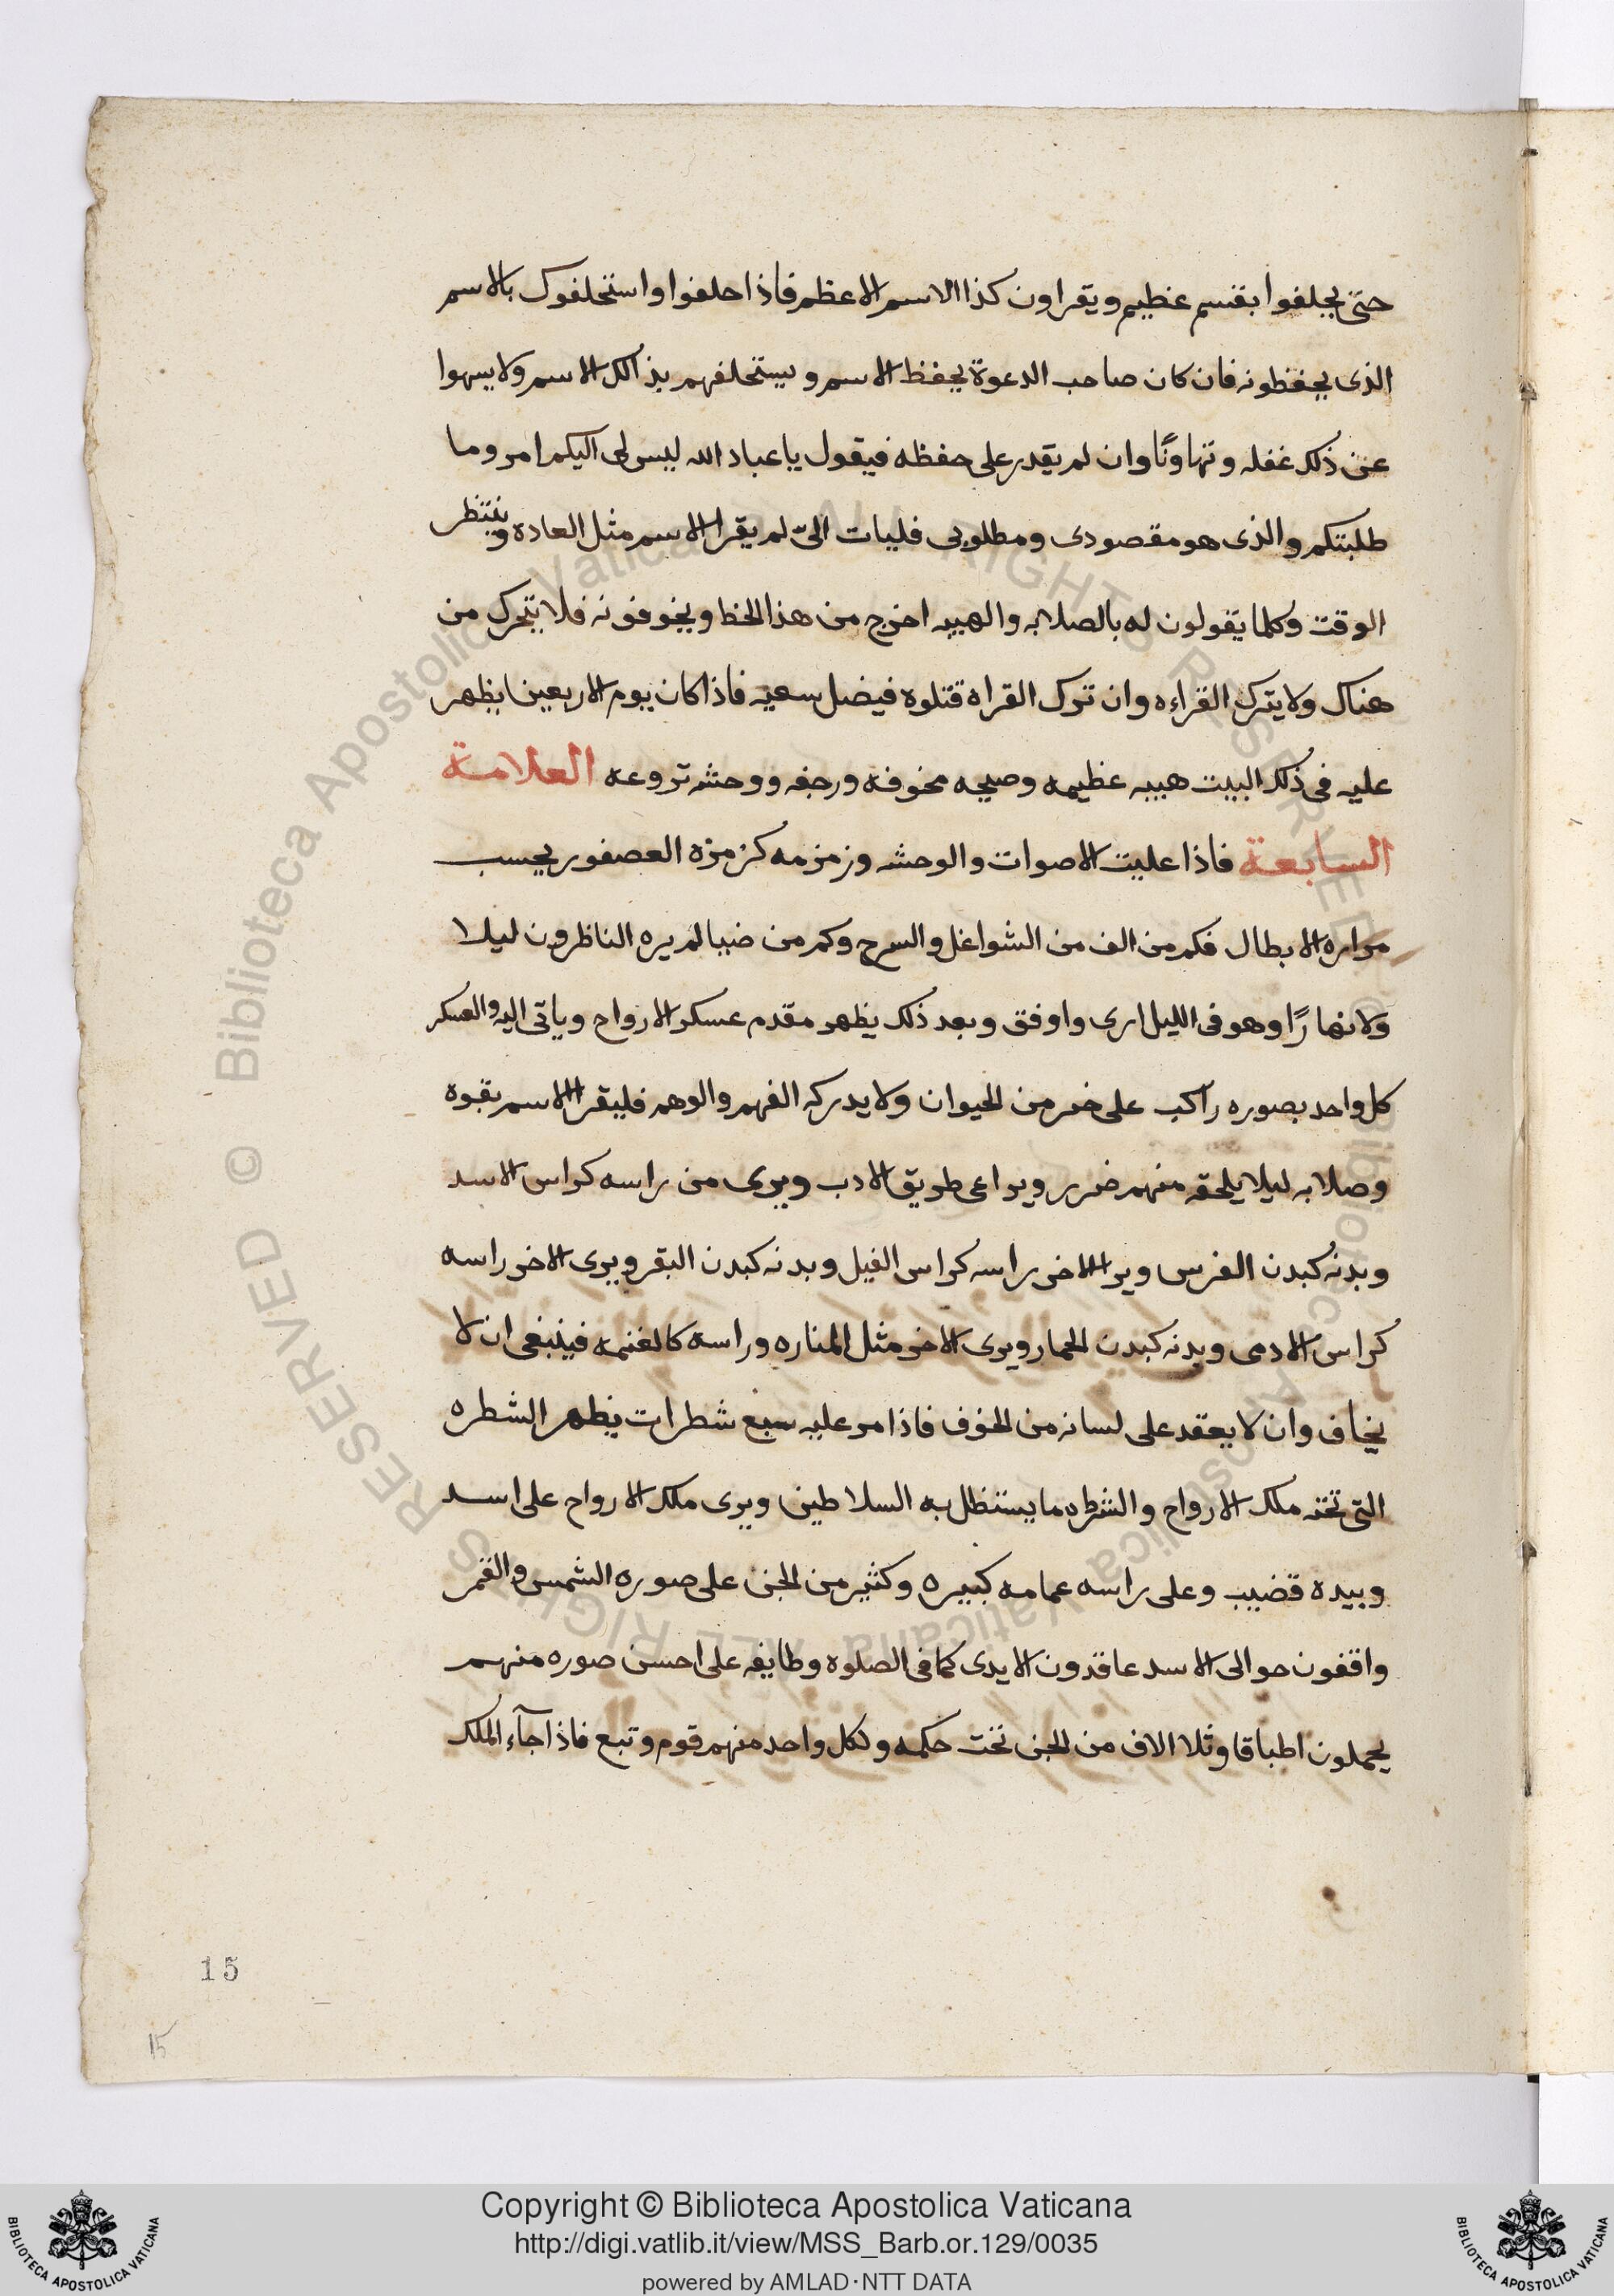 حتى يحلفوا بقسم عظيم ويقراون كذا الاسم الاعظم فاذا حلفوا واستحلفوك بالاسم
الذى يحفظونه فان كان صاحب الدعوة يحفظ الاسم ويستحلفهم بذالك الاسم ولا يسهوا
عن ذلك غفله وتهاونًا وان لم يقدر على حفظه فيقول يا عباد الله ليس لى اليكم امر وما
طلبتكم والذى هو مقصودى ومطلوبى فليات الىّ لم يقرا الاسم مثل العاده وينتظر
الوقت وكلما يقولون له بالصلابه والهيبه اخرج من هذا الخط ويخوفونه فلا يتحرك من
هناك ولا يترك القراءه وان ترك القراه قتلوه فيضل سعيه فاذا كان يوم الاربعين يظهر
عليه فى ذلك البيت هيبه عظيمه وصيحه مخوفه ورجفه ووحشه تروعه العلامة
السابعة فاذا عليت الاصوات والوحشه وزمزمه كزمزه العصفور يحسب
مراره الابطال فكم من الف من الشواغل والسرج وكم من ضيا لم يره الناظرون ليلا
ولا نهارًا وهو فى الليل ارى واوفق وبعد ذلك يظهر مقدم عسكر الارواح وياتى اليه والعسكر
كل واحد بصوره راكب على خمر من الحيوان ولا يدركه الفهم والوهم فليقرا الاسم بقوه
وصلابه ليلا يلحقه منهم ضرر ويراعى طريق الادب ويرى من راسه كراس الاسد
وبدنه كبدن الفرس ويرا الاخر راسه كراس الفيل وبدنه كبدن البقر ويرى الاخر راسه
كراس الادمى وبدنه كبدن الحمار ويرى الاخر مثل المناره وراسه كالغنمه فينبغى ان لا
يخاف وان لا يعقد على لسانه من الخوف فاذا مر عليه سبع شطرات يظهر الشطره
التى تحته ملك الارواح والشطره ما يستظل به السلاطين ويرى ملك الارواح على اسد
وبيده قضيب وعلى راسه عمامه كبيره وكثير من الجن على صوره الشمس والقمر
واقفون حوالى الاسد عاقدون الايدى كما فى الصلوه وطايفه على احسن صوره منهم
يحملون اطباقا وثلا الاف من الجن تحت حكمه ولكل واحد منهم قوم وتبع فاذا جآء الملك
15
15
Copyright © Biblioteca Apostolica Vaticana
http://digi.vatlib.it/view/MSS_Barb.or.129/0035
powered by AMLAD·NTT DATA